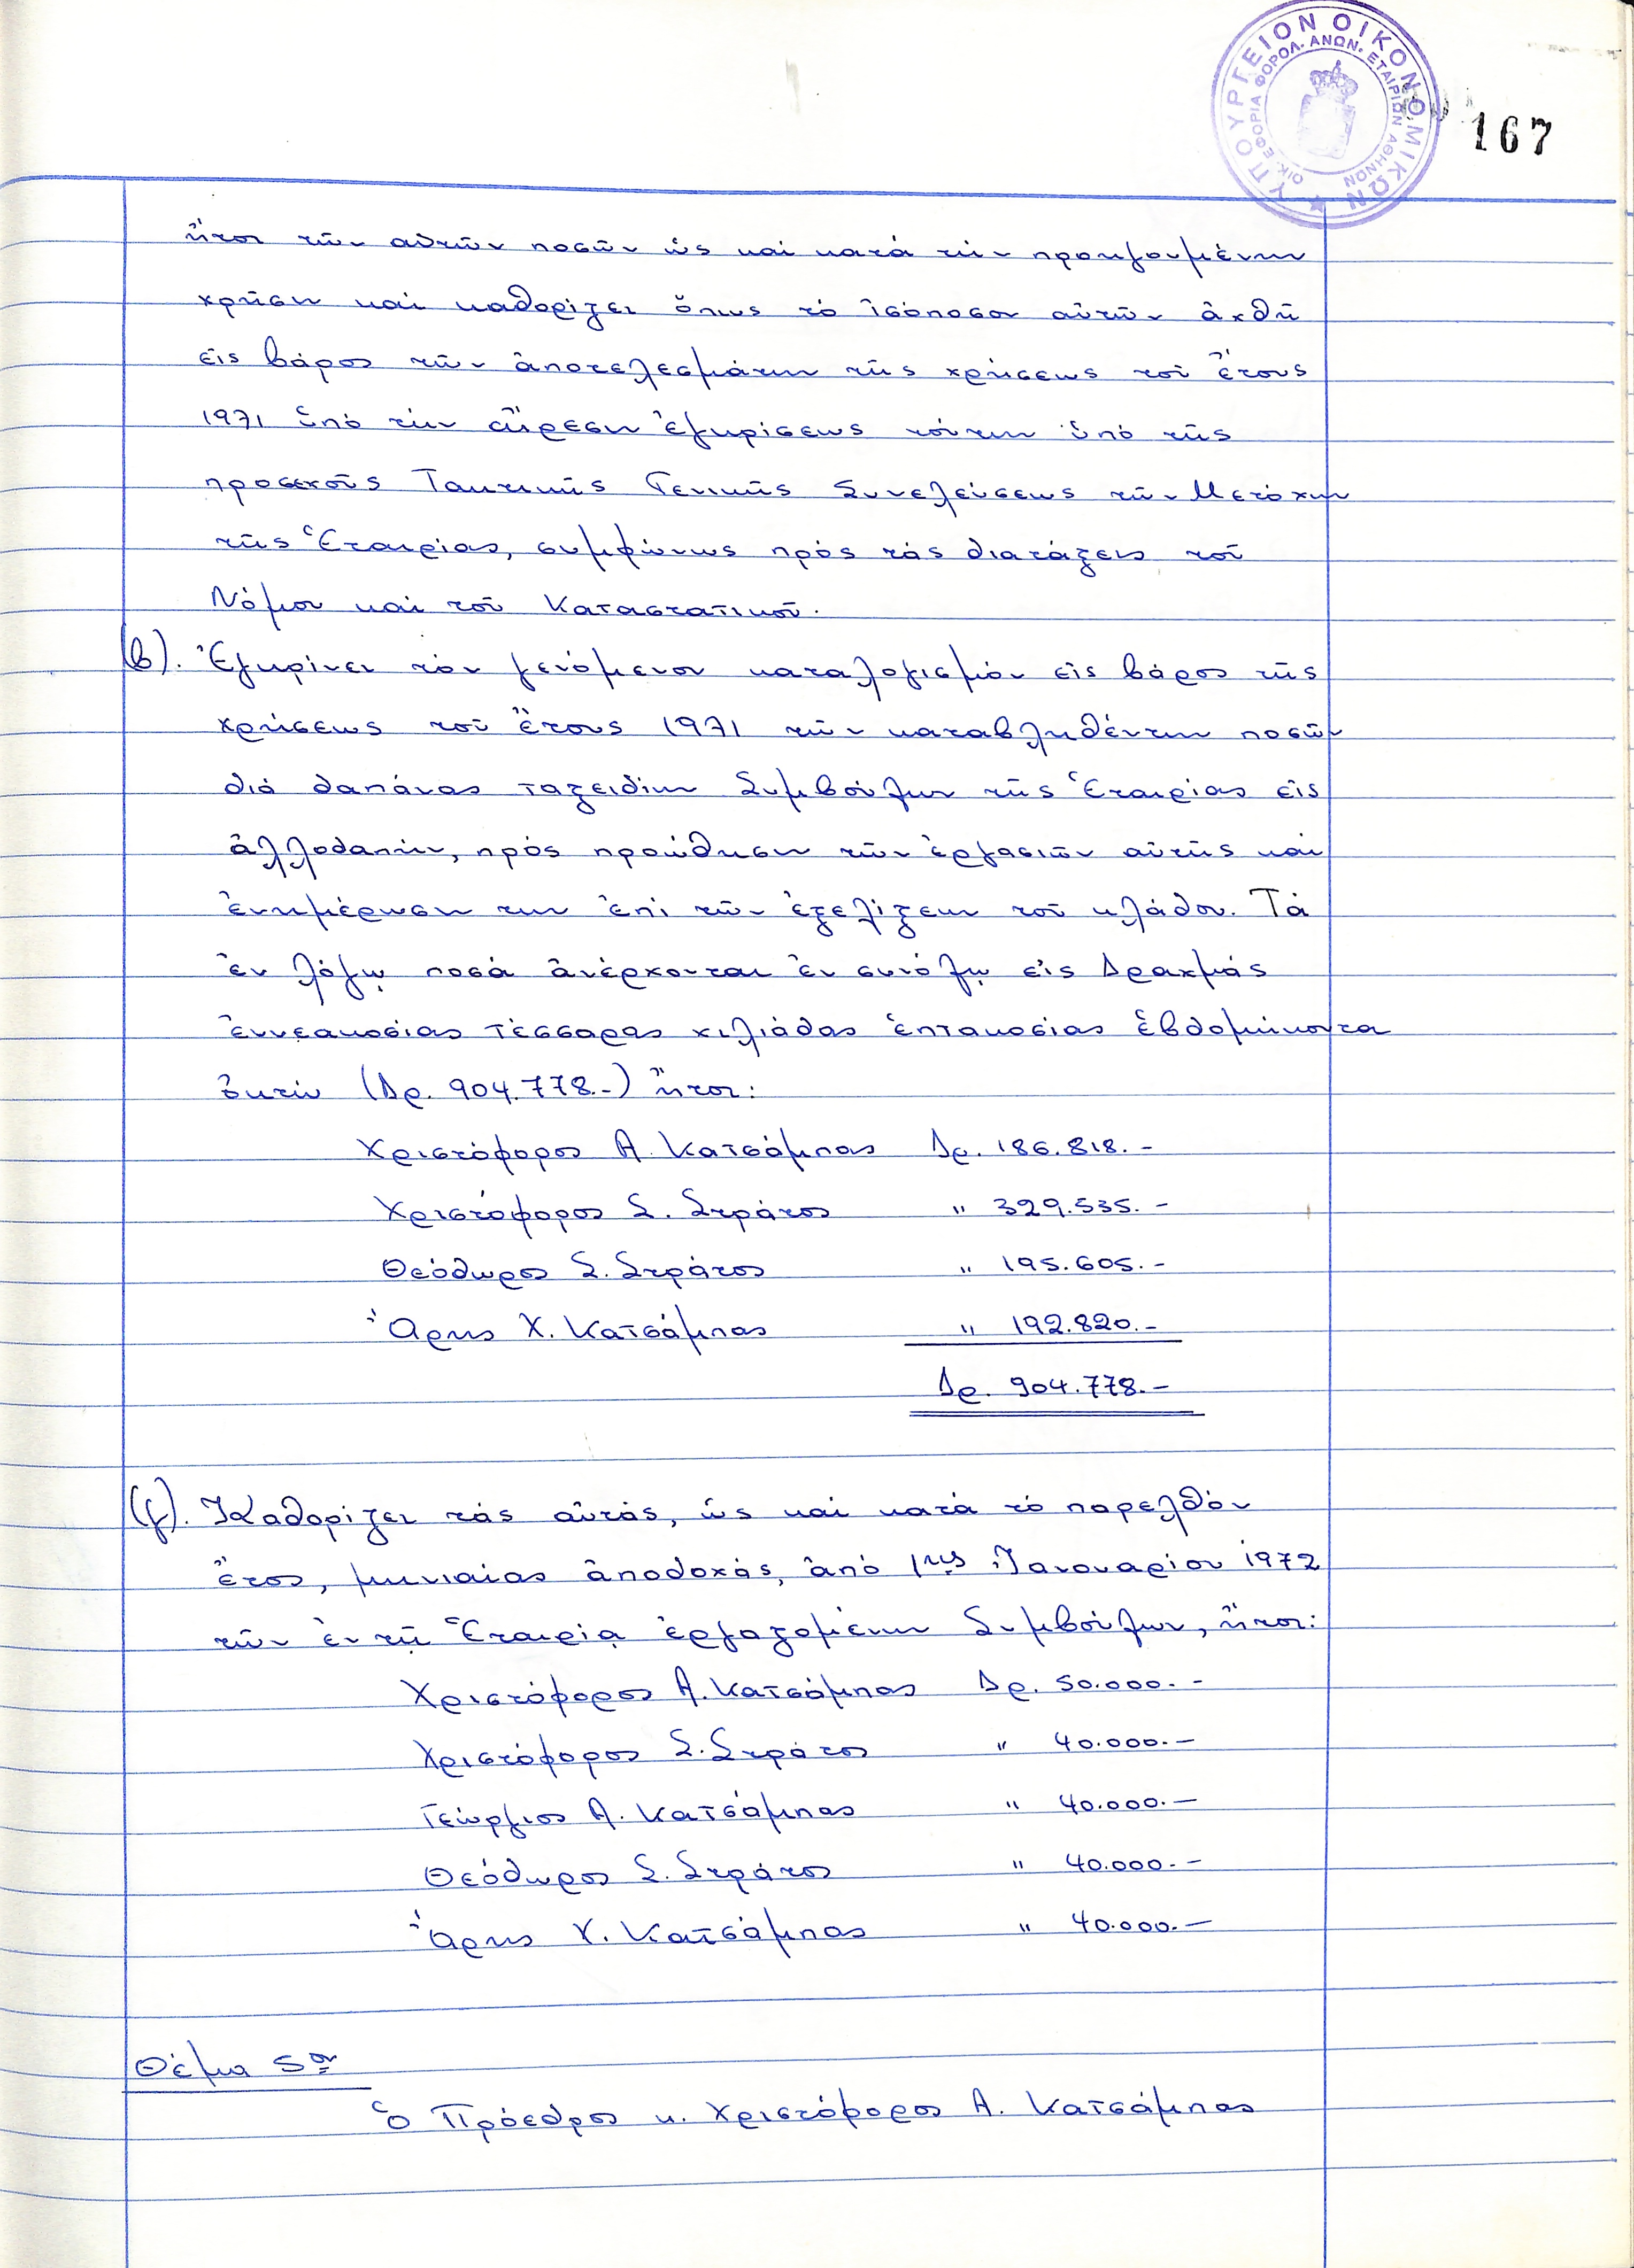 ΥΠΟΥΡΓΕΙΟΝ ΟΙΚΟΝΟΜΙΚΩΝ
ΟΙΚ. ΕΦΟΡΙΑ ΦΟΡΟΛ. ΑΝΩΝ. ΕΤΑΙΡΙΩΝ ΑΘΗΝΩΝ
167
ἤτοι τῶν αὐτῶν ποσῶν ὡς καί κατά τήν προηγουμένην
χρῆσιν καί καθορίζει ὅπως τό ἰσόποσον αὐτῶν ἀχθῆ
εἰς βάρος τῶν ἀποτελεσμάτων τῆς χρήσεως τοῦ ἔτους
1971 ὑπό τήν αἵρεσιν ἐγκρίσεως τούτων ὑπό τῆς
προσεχοῦς Τακτικῆς Γενικῆς Συνελεύσεως τῶν Μετόχων
τῆς Ἑταιρίας, συμφώνως πρός τάς διατάξεις τοῦ
Νόμου καί τοῦ Καταστατικοῦ.
(β). Ἐγκρίνει τόν γενόμενον καταλογισμόν εἰς βάρος τῆς
χρήσεως τοῦ ἔτους 1971 τῶν καταβληθέντων ποσῶν
διά δαπάνας ταξειδίων Συμβούλων τῆς Ἑταιρίας εἰς
ἀλλοδαπήν, πρός προώθησιν τῶν ἐργασιῶν αὐτῆς καί
ἐνημέρωσίν των ἐπί τῶν ἐξελίξεων τοῦ κλάδου. Τά
ἐν λόγῳ ποσά ἀνέρχονται ἐν συνόλῳ εἰς Δραχμάς
ἐννεακοσίας τέσσαρας χιλιάδας ἑπτακοσίας ἑβδομήκοντα
ὀκτώ (Δρ. 904.778.-) ἤτοι:
Χριστόφορος Α. Κατσάμπας Δρ. 186.818.-
Χριστόφορος Σ. Στράτος " 329.535.-
Θεόδωρος Σ. Στράτος " 195.605.-
Ἄρης Χ. Κατσάμπας " 192.820.-
Δρ. 904.778.-
(γ). Καθορίζει τάς αὐτάς, ὡς καί κατά τό παρελθόν
ἔτος, μηνιαίας ἀποδοχάς, ἀπό 1ης Ἰανουαρίου 1972
τῶν ἐν τῇ Ἑταιρίᾳ ἐργαζομένων Συμβούλων, ἤτοι:
Χριστόφορος Α. Κατσάμπας Δρ. 50.000.-
Χριστόφορος Σ. Στράτος " 40.000.-
Γεώργιος Α. Κατσάμπας " 40.000.-
Θεόδωρος Σ. Στράτος " 40.000.-
Ἄρης Χ. Κατσάμπας " 40.000.-
Θέμα 5ον
Ὁ Πρόεδρος κ. Χριστόφορος Α. Κατσάμπας